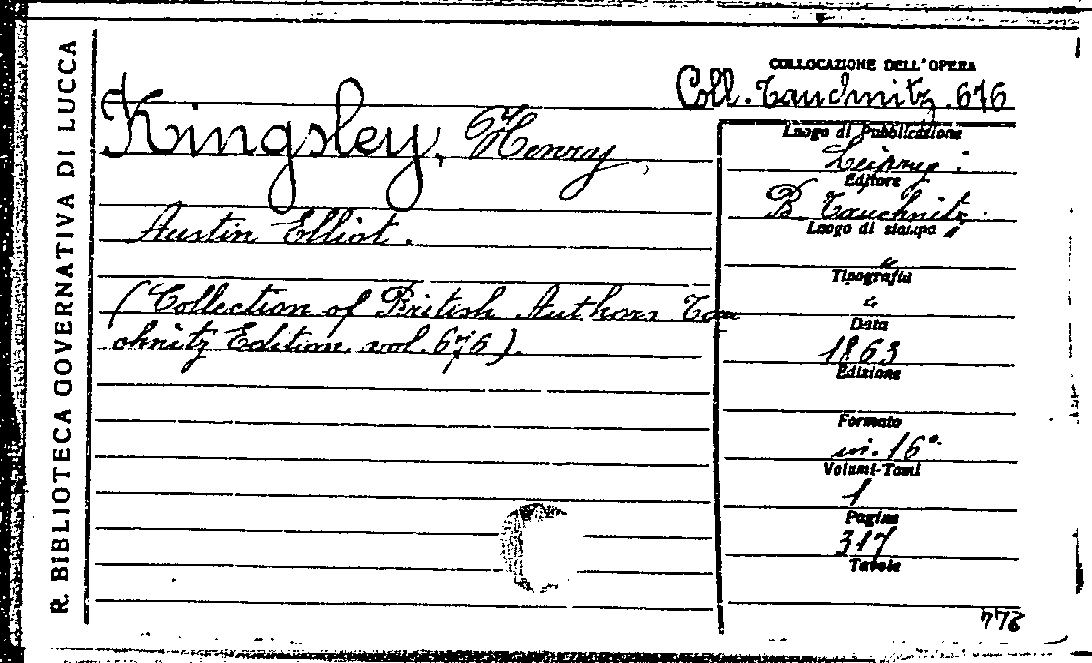 R. BIBLIOTECA GOVERNATIVA DI LUCCA
COLLOCAZIONE DELL'OPERA
Coll. Tauchnitz. 676
Kingsley, Henry,
Austin Elliot.
(Collection of British Authors Tau
chnitz Edition. vol. 676).
Luogo di Pubblicazione
Leipzig:
Editore
B. Tauchnitz.
Luogo di stampa
"
Tipografia
"
Data
1863
Edizione
Formato
in. 16°.
Volumi-Tomi
1
Pagine
317
Tavole